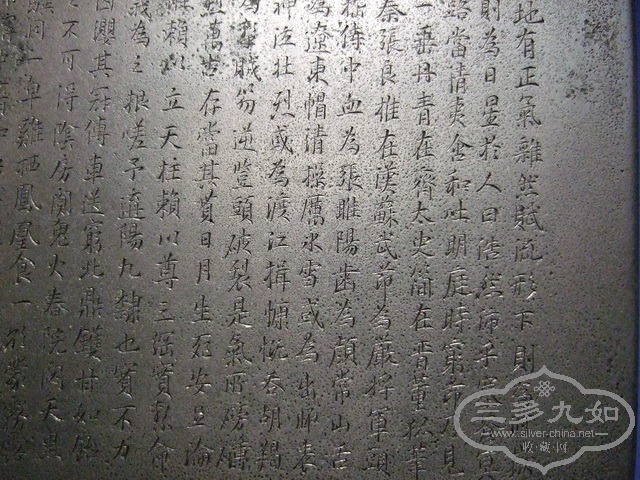 地有正氣雜然賦流形下則
則為日星於人曰浩然沛乎塞
路當清夷含和吐明庭時窮節乃見
一垂丹青在齊太史簡在晉董狐筆
秦張良推在漢蘇武節為嚴將軍頭
嵇侍中血為張睢陽齒為顏常山舌
為遼東帽清操厲冰雪或為出師表
神泣壯烈或為渡江楫慷慨吞胡羯
為擊賊笏逆豎頭破裂是氣所磅礴
烈萬古存當其貫日月生死安足論
維賴以立天柱賴以尊三綱實繫命
義為之根嗟予遘陽九隸也實不力
囚纓其冠傳車送窮北鼎鑊甘如飴
之不可得陰房闃鬼火春院閟天黑
驥同一皁雞栖鳳凰食一朝蒙霧
三多九如
www.silver-china.net
收藏网